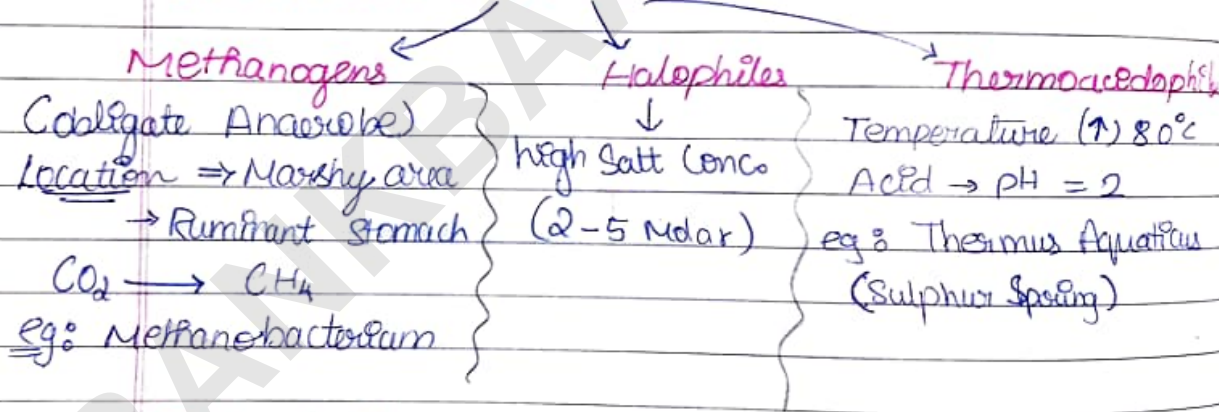 Methanogens
(obligate Anaerobe)
Location ⇒ Marshy area
→ Ruminant Stomach
CO₂ → CH₄
eg: Methanobacterium
Halophiles
↓
high Salt Conc.
(2-5 Molar)
Thermoacedophil
Temperature (↑) 80°c
Acid → pH = 2
eg: Thermus Aquaticus
(Sulphur Spring)